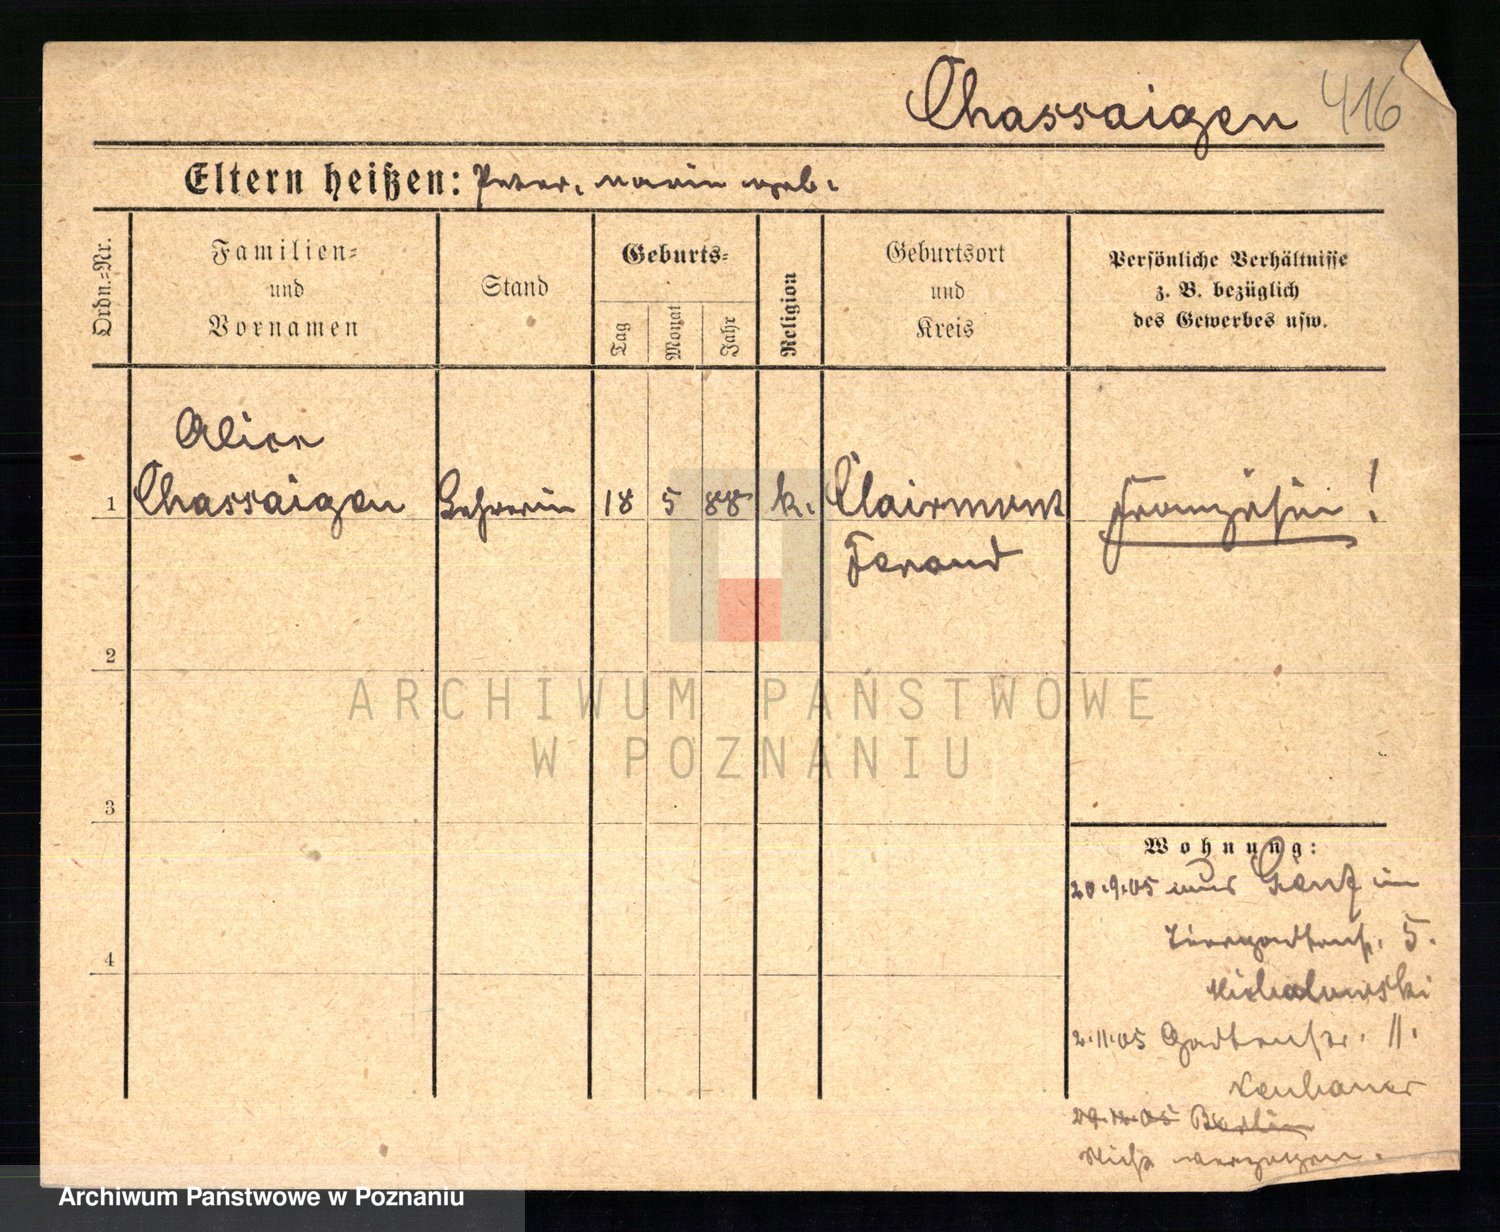 Chassaigen 416
Eltern heißen: Peter, Marie geb.
Ordn.-Nr.
Familien-
und
Vornamen
Stand
Geburts-
Tag
Monat
Jahr
Religion
Geburtsort
und
Kreis
Persönliche Verhältnisse
z. B. bezüglich
des Gewerbes usw.
Alice
1 Chassaigen Lehrerin 18 5 88 k. Clairmont Französin!
Ferand
2
ARCHIWUM PAŃSTWOWE
W POZNANIU
3
Wohnung:
20.9.05 aus Genf in
Tiergartenstr. 5.
Michalowski
4
2.11.05 Gartenstr. 11.
29.12.05 Berlin
Nicht verzogen.
Archiwum Państwowe w Poznaniu